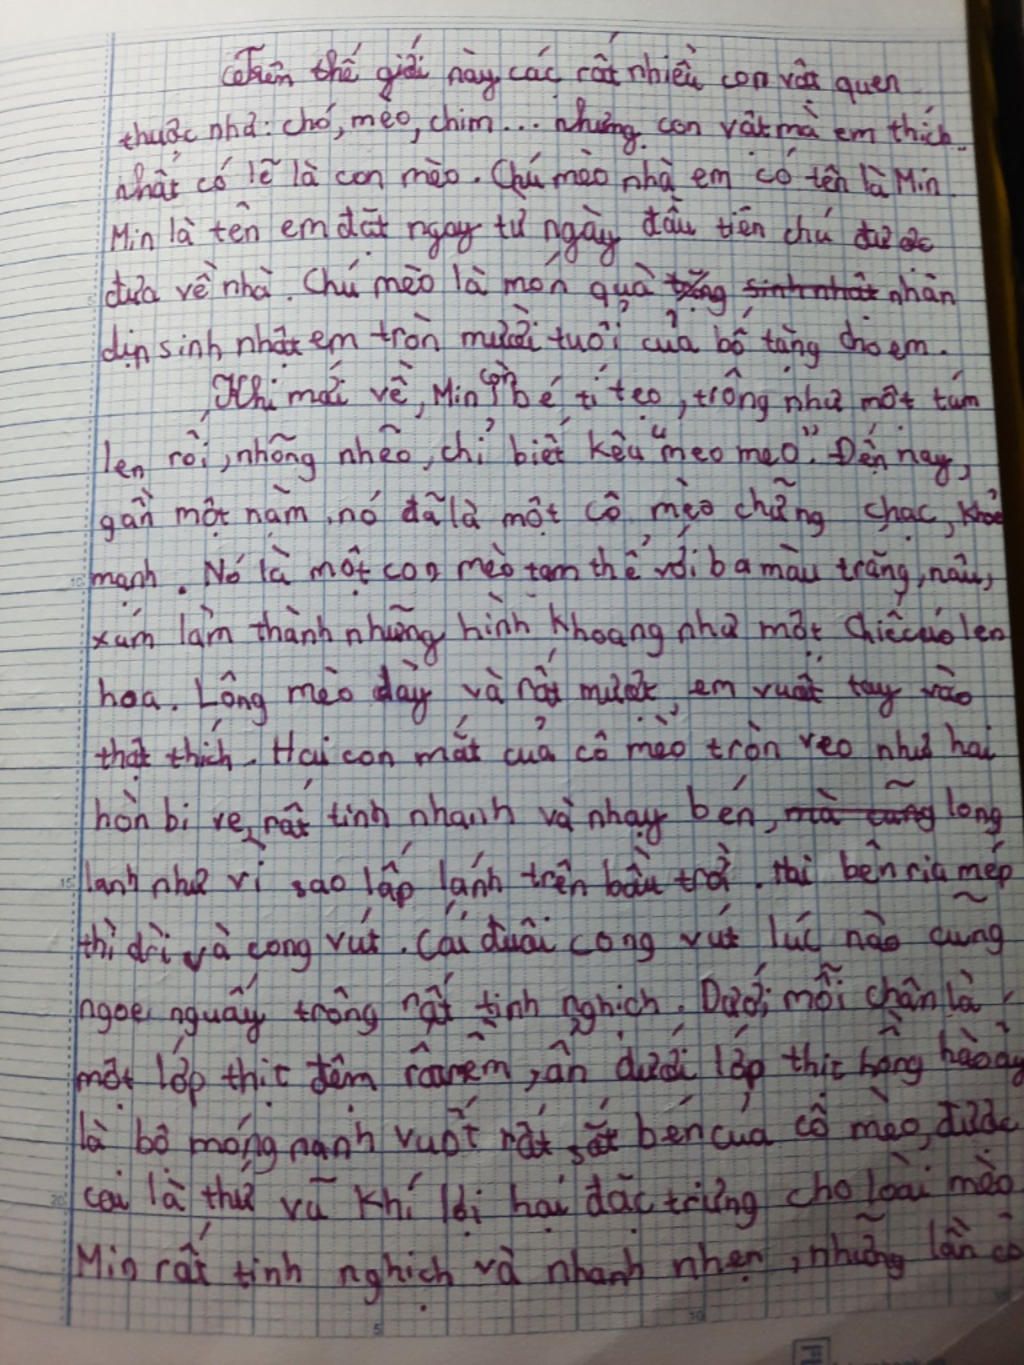 Trên thế giới này các rất nhiều con vật quen
thuộc như: chó, mèo, chim... nhưng con vật mà em thích
nhất có lẽ là con mèo. Chú mèo nhà em có tên là Min
Min là tên em đặt ngay từ ngày đầu tiên chú được
đưa về nhà. Chú mèo là món quà tặng sinh nhật nhân
dịp sinh nhật em tròn mười tuổi của bố tặng cho em.
Khi mới về, Min còn bé tí tẹo, trông như một túm
len rối, nhõng nhẽo, chỉ biết kêu "meo meo". Đến nay,
gần một năm, nó đã là một cô mèo chững chạc, khoẻ
mạnh. Nó là một con mèo tam thể với ba màu trắng, nâu,
xám làm thành những hình khoang như một chiếc áo len
hoa. Lông mèo dày và rất mượt, em vuốt tay vào
thật thích. Hai con mắt của cô mèo tròn veo như hai
hòn bi ve, rất tinh nhanh và nhạy bén, mà cũng long
lanh như vì sao lấp lánh trên bầu trời. Hai bên ria mép
thì dài và cong vút. Cái đuôi cong vút lúc nào cũng
ngoe nguẩy trông rất tinh nghịch. Dưới mỗi chân là
một lớp thịt đệm êm, ẩn dưới lớp thịt hồng hào ấy
là bộ móng nanh vuốt rất sắt bén của cô mèo, được
coi là thứ vũ khí lợi hại đặc trưng cho loài mèo
Min rất tinh nghịch và nhanh nhẹn, những lần cô